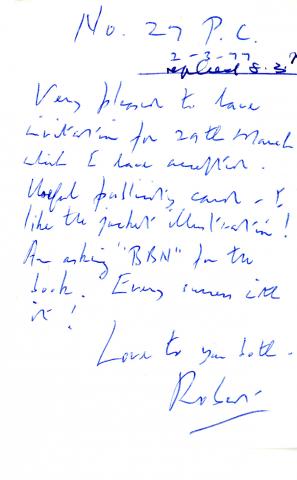 No. 27 P.C.
2-3-77
replied 8.3.7
Very pleased to have
invitation for 29th March
which I have accepted.
Useful publicity card - I
like the jacket illustration!
Am asking "BBN" for the
book. Every success with
it!
Love to you both -
Robert